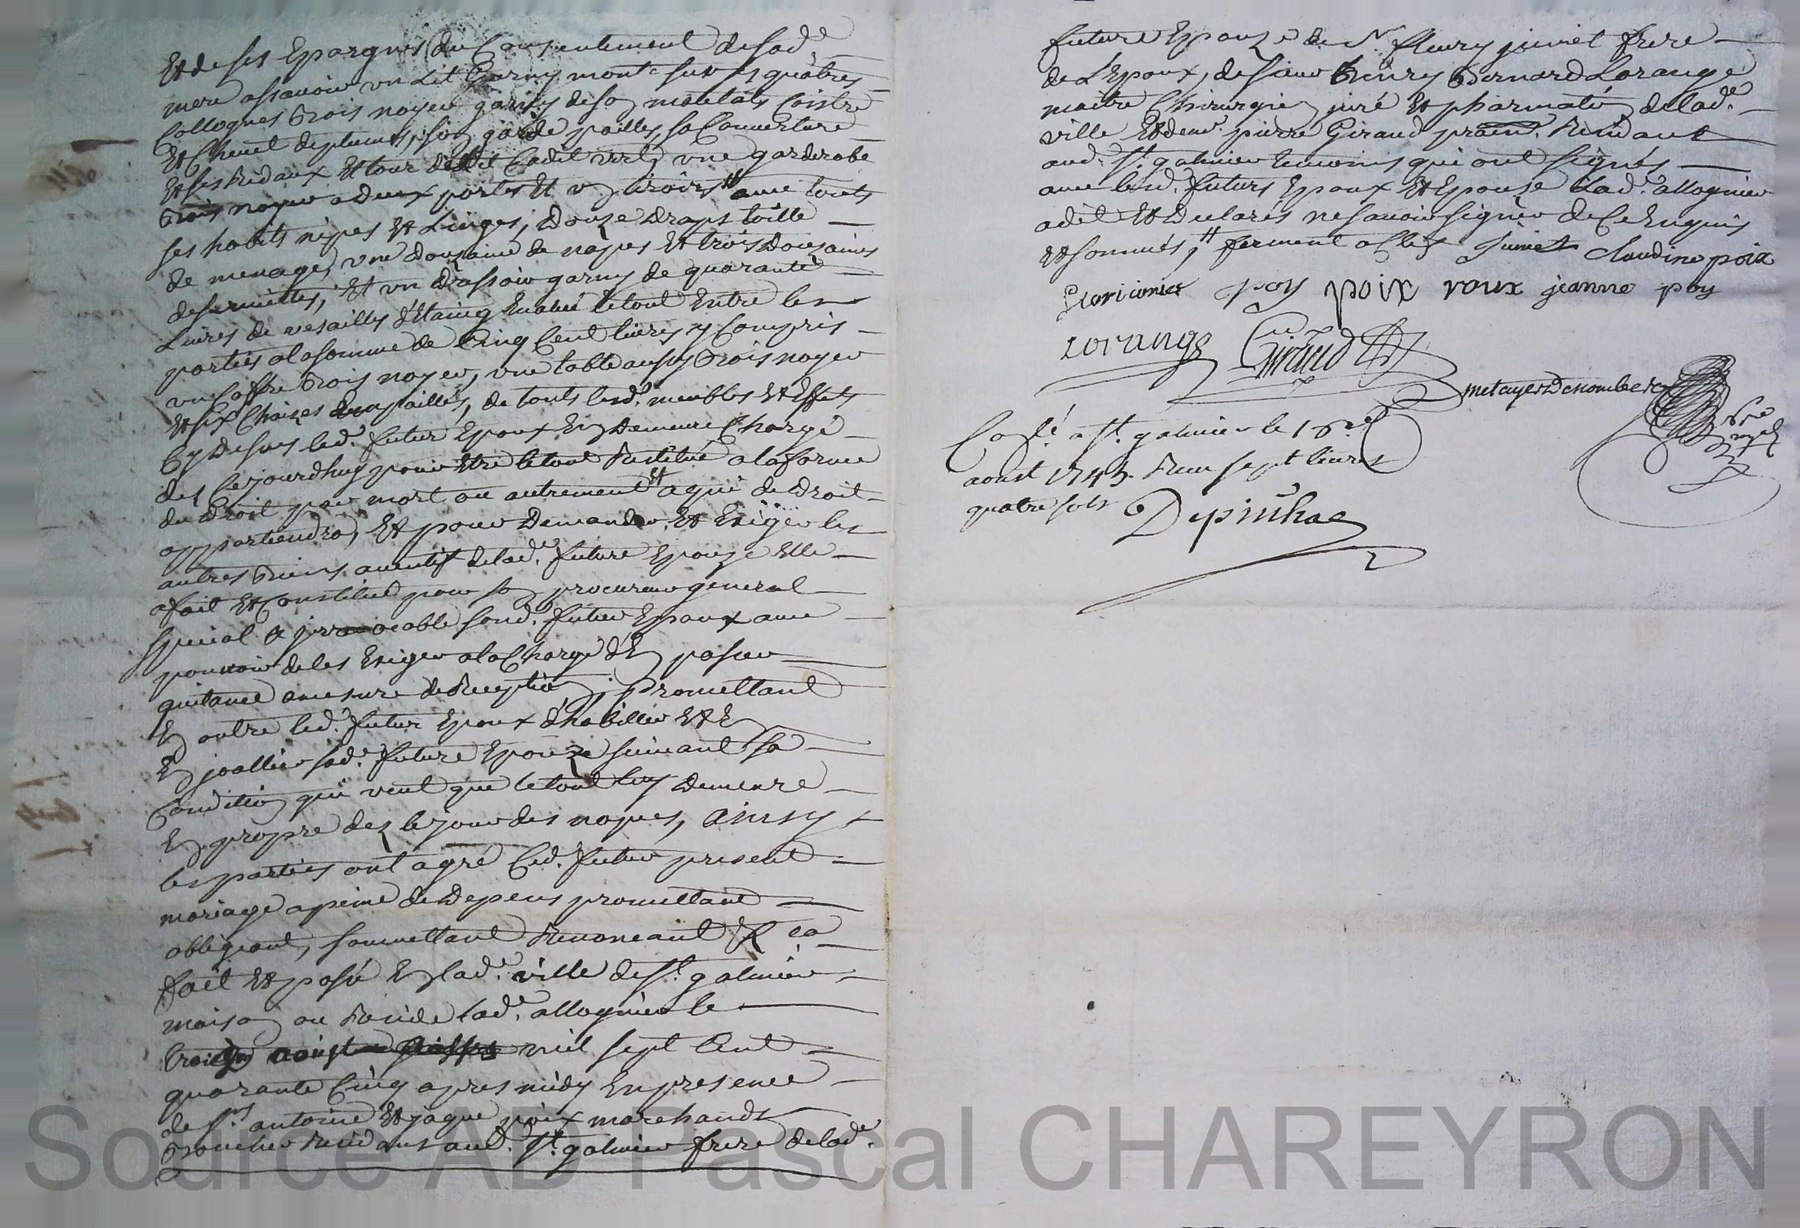 Et de ses Epargnes du Consentement de sad.e
mere assavoir un Lit garny monté sur ses quatres
Collognes bois noyer garny de son matelats Coistre
Et Chevet deplume, son garde pailles, sa Couverture
Et ses Rideaux Et tour de Lit Cadit vert, une garderobe
bois noyer a Deux portes Et un tiroir avec touts
ses habits nipes Et Linges, Douze Draps toille
de menages, une Douzaine de napes Et trois Douzaines
deserviettes, Et un Dressoir garny de quarante
Livres de vesailles d'Etaing Evalué letout Entre les
parties alasomme de Cinq Cent livres y Compris
un Coffre bois noyer, une table aussy bois noyer
Et six Chaizes en pailles, de touts lesd. meubles Et Effets
Cy Desus led. futur Epoux En Demeure Chargé
des Cejourdhuy pour Etre letout Restitué alaforme
du Droit par mort ou autrement a qui de Droit
appartiendra, Et pour Demander Et Exiger les
autres Biens aventif delad.e future Epouze Elle
afait Et Constitué pour son procureur general
special & jrrevocable sond. futur Epoux avec
pouvoir deles Exiger alaCharge d'En passer
quitance amesure deReception, promettant
En outre led. futur Epoux d'habiller Et En
En joallier sad.e future Epouze suivant sa
Condition qui veut que letout luy Demeure
En propre dez lejour des nopces, ainsy
les parties ont agré led. futur present
mariage apeine de Depens promettant
obligeant, soumettant Renonceant & Ca
fait Et passé En lad.e ville de St. galmier
maison ou Reside lad.e allognier le
troizie aoust mil sept Cent
quarante Cinq apres midy En presence
de Srs. antoine Et jaque poix marchands
Boucher Residants aud. St. galmier frere delad.e
future Epouze de Sr. fleury jumel frere
de L'Epoux, de sieur henry Bernard Lorange
maitre Chirurgien juré Et pharmatien delad.e
ville Et de mr. pierre Giraud praticien Residant
aud. St. galmier temoins qui ont signés
avec lesd. futurs Epoux Et Epouse lad. allognier
adit Et Declarés nesavoir signer de Ce Enquis
Et sommés,
claudine poix
poy poix roux jeanne poy
Lorange Giraud
metayer Denombe
Conlé a St. galmier le
aoust 1745. Reçu sept livres
quatre sols
Depinhac
Source AD Pascal CHAREYRON